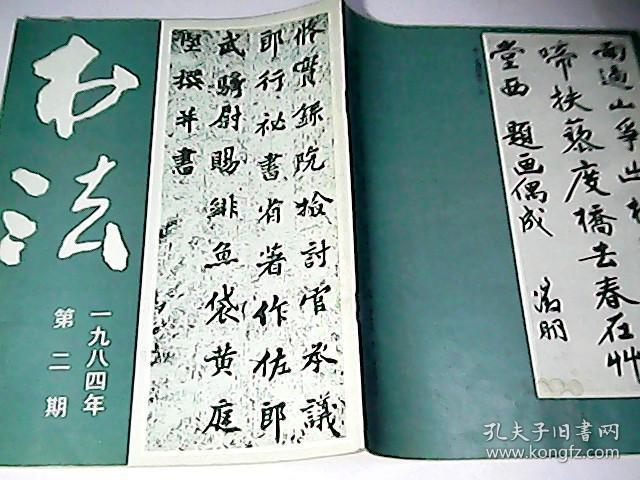 书法
一九八四年
第二期
修實録院檢討官承議
郎行祕書省著作佐郎
武騎尉賜緋魚袋黄庭
堅撰并書
雨過山爭出
啼扶藜度橋去春在艸
堂西 題画偶成
滿明
孔夫子旧书网
www.kongfz.com